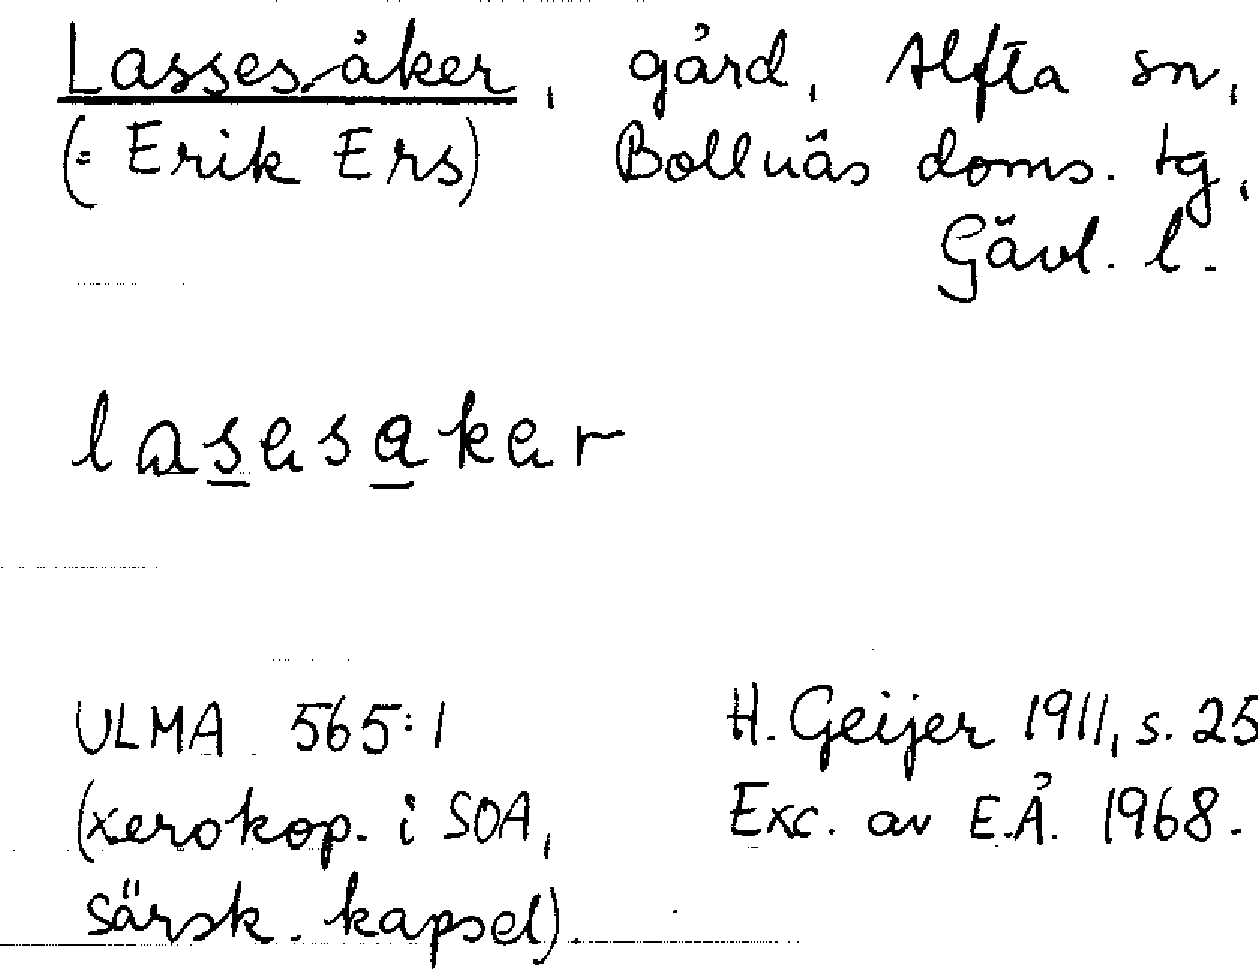 Lassesåker, gård, Alfta sn,
(= Erik Ers) Bollnäs doms. tg,
Gävl. l.
lasesaker
ULMA 565:1 H. Geijer 1911, s. 25
(xerokop. i SOA, Exc. av E.Å. 1968.
särsk. kapsel).